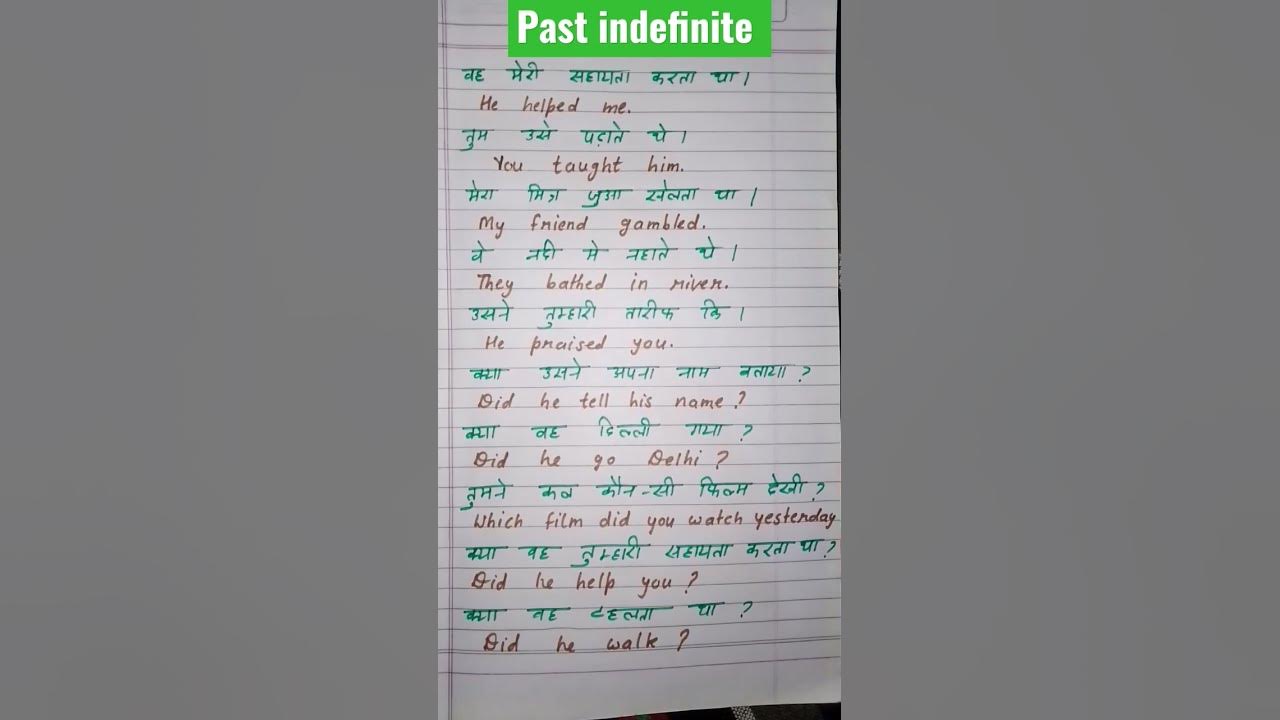 Past indefinite
वह मेरी सहायता करता था।
He helped me.
तुम उसे पढ़ाते थे।
You taught him.
मेरा मित्र जुआ खेलता था।
My friend gambled.
वे नदी मे नहाते थे।
They bathed in river.
उसने तुम्हारी तारीफ कि।
He praised you.
क्या उसने अपना नाम बताया?
Did he tell his name?
क्या वह दिल्ली गया?
Did he go Delhi?
तुमने कल कौन-सी फिल्म देखी?
Which film did you watch yesterday
क्या वह तुम्हारी सहायता करता था?
Did he help you?
क्या वह टहलता था?
Did he walk?